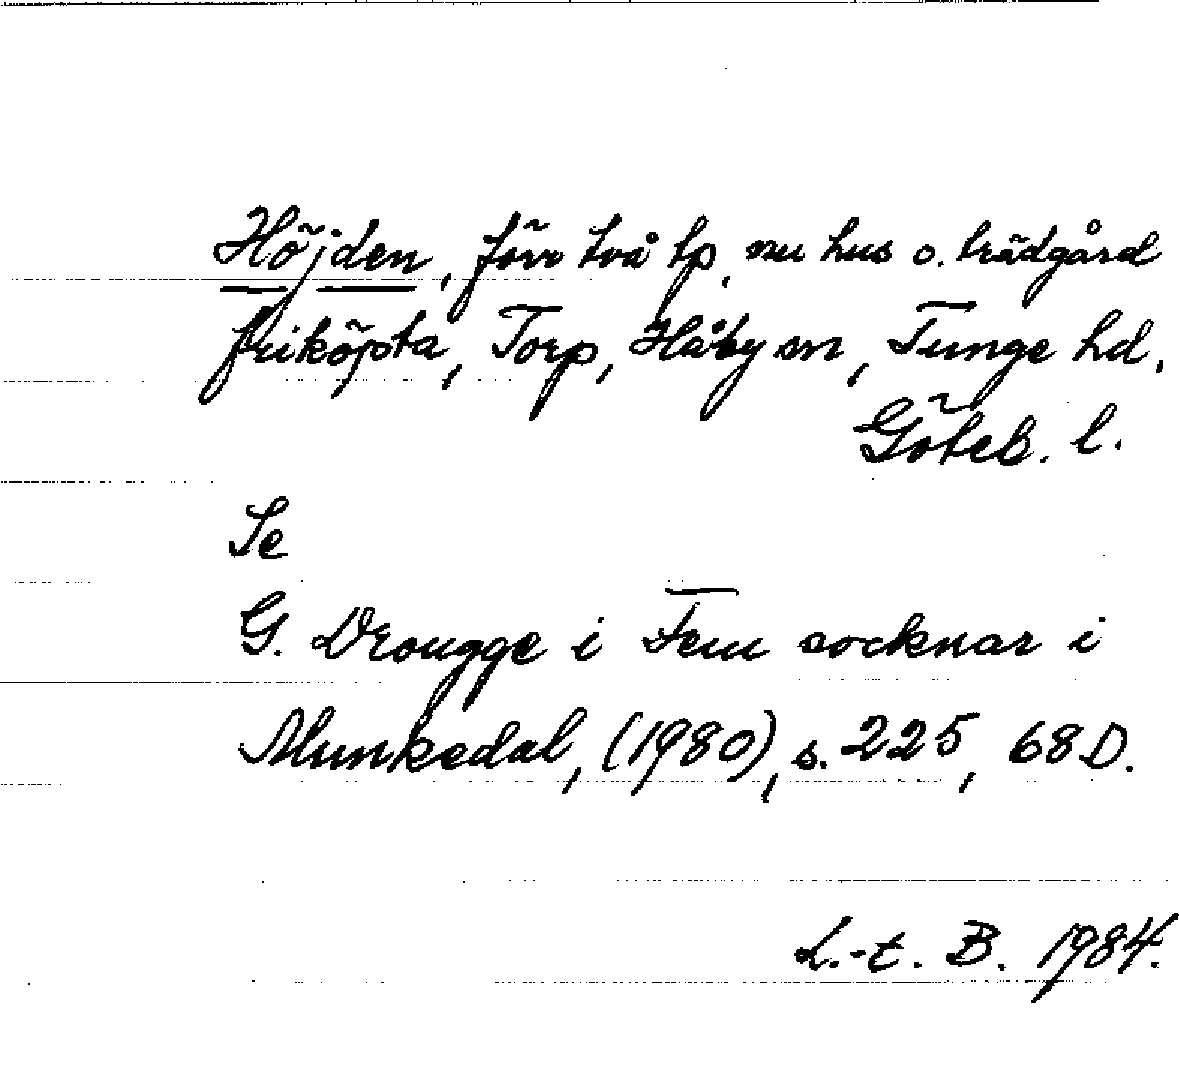 Höjden, förr två tp, nu hus o. trädgård
friköpta, Torp, Håby sn, Tunge hd,
Göteb. l.
Se
G. Drougge i Fem socknar i
Munkedal, (1980), s. 225, 68 D.
L.-t. B. 1984.